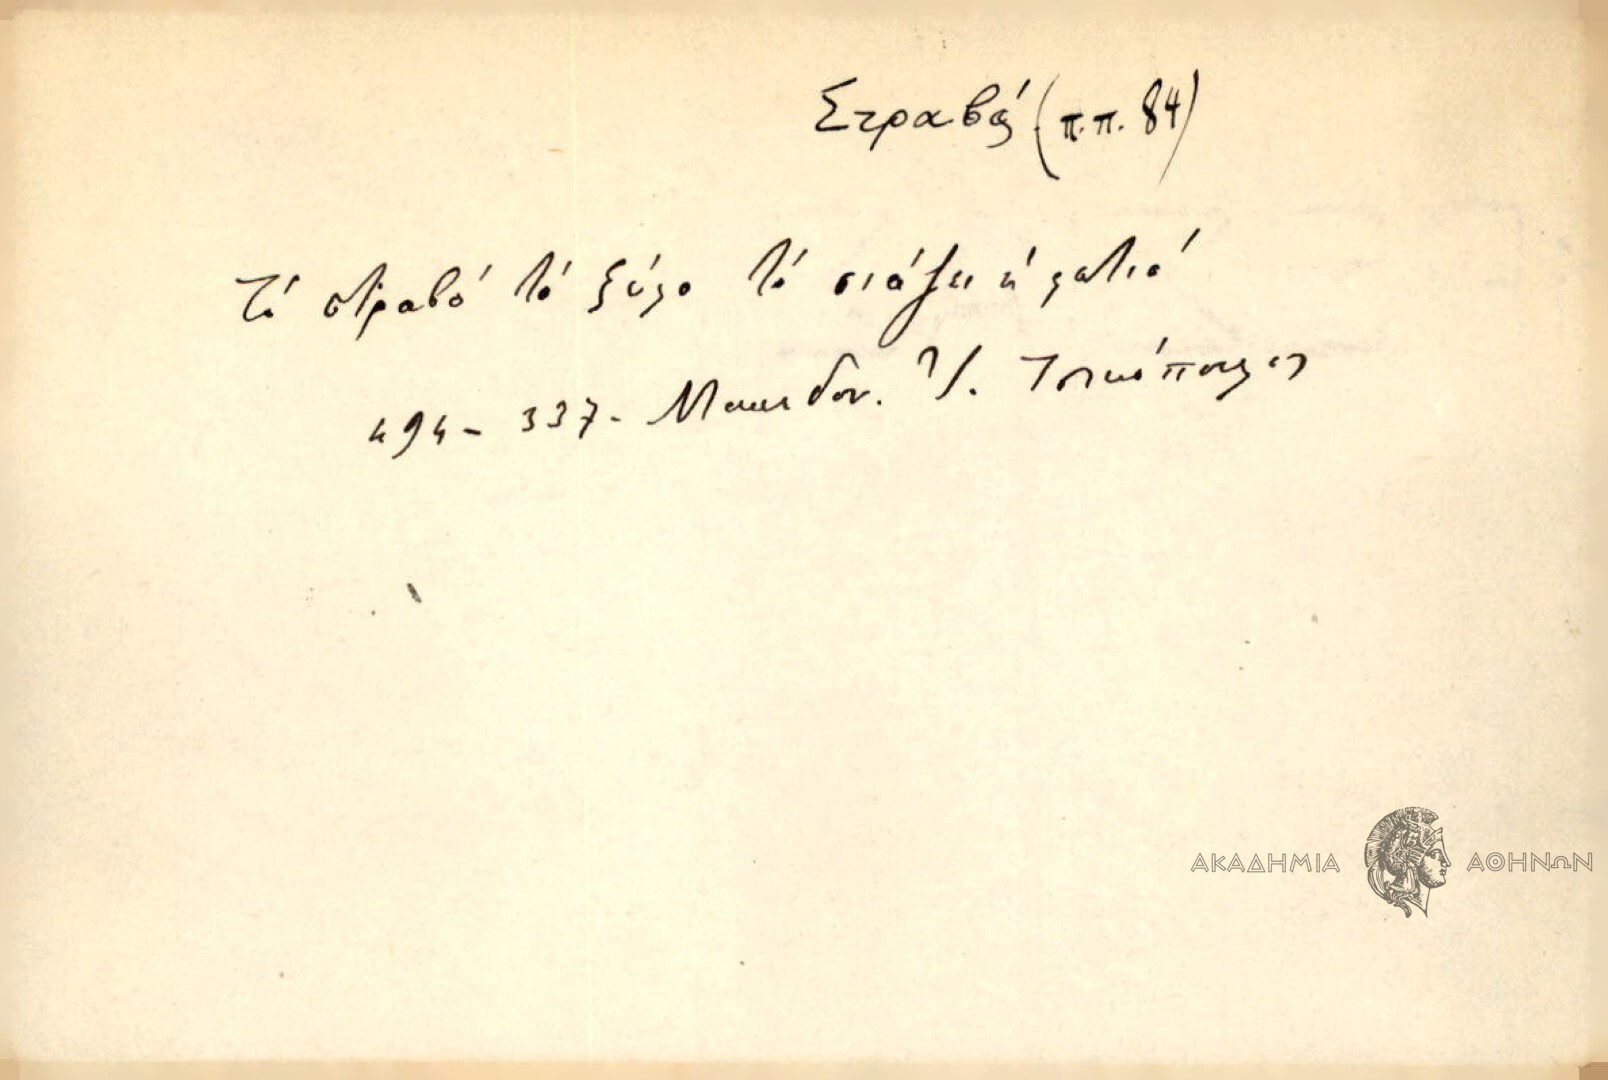 Στραβά (π.π. 84)
Τό στραβό τό ξύλο τό σιάζει ἡ φωτιά
494 - 337 - Μακεδον.
ΑΚΑΔΗΜΙΑ ΑΘΗΝΩΝ